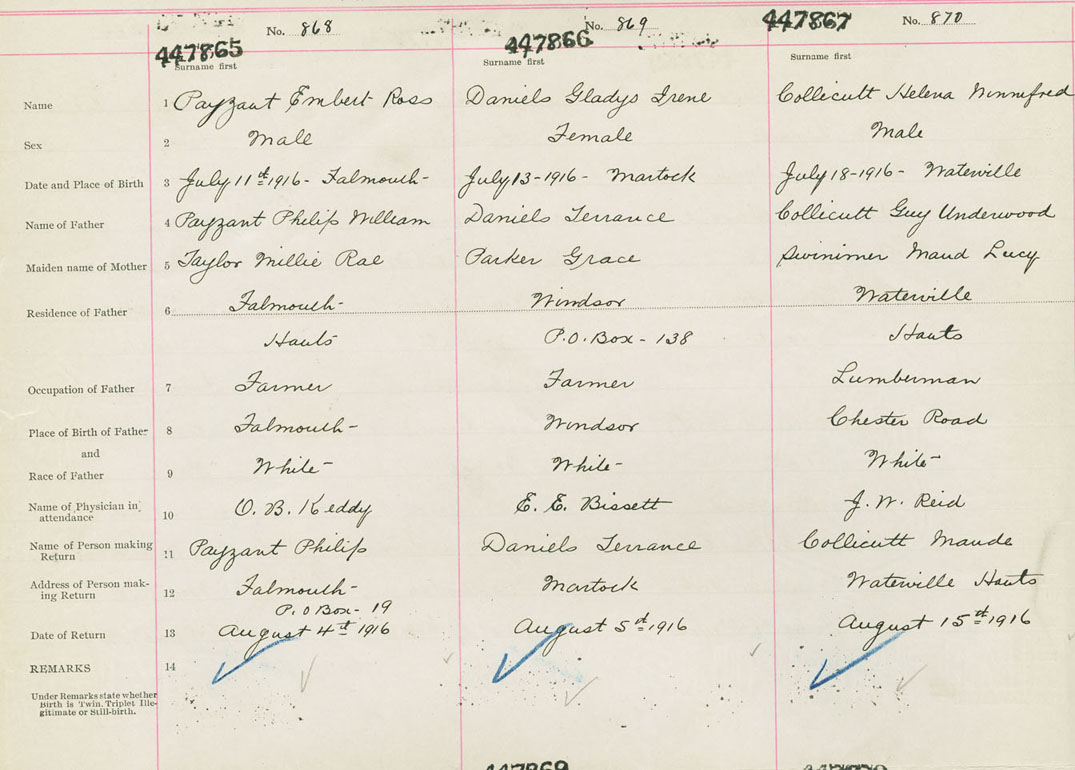 No. 868 No. 869 No. 870
447865 447866 447867
Surname first Surname first Surname first
Name 1 Payzant Embert Ross Daniels Gladys Irene Collicutt Helena Winnifred
Sex 2 Male Female Male
Date and Place of Birth 3 July 11th 1916- Falmouth- July 13-1916- Martock July 18-1916- Waterville
Name of Father 4 Payzant Philip William Daniels Terrance Collicutt Guy Underwood
Maiden name of Mother 5 Taylor Millie Rae Parker Grace Swinimer Maud Lucy
Residence of Father 6 Falmouth- Windsor Waterville
Hants P.O. Box - 138 Hants
Occupation of Father 7 Farmer Farmer Lumberman
Place of Birth of Father 8 Falmouth- Windsor Chester Road
and
Race of Father 9 White- White- White-
Name of Physician in attendance 10 O. B. Keddy E. E. Bissett J. W. Reid
Name of Person making Return 11 Payzant Philip Daniels Terrance Collicutt Maude
Address of Person mak-ing Return 12 Falmouth- Martock Waterville Hants
P.O Box- 19
Date of Return 13 August 4th 1916 August 5th 1916 August 15th 1916
REMARKS 14
Under Remarks state whether
Birth is Twin. Triplet Ille-
gitimate or Still-birth.
447869